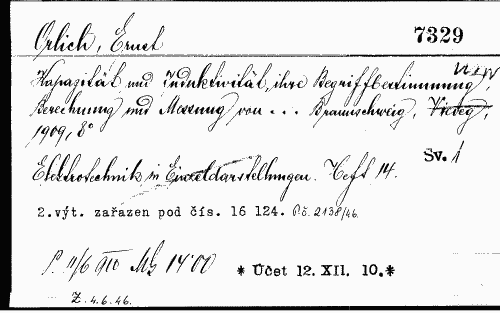 Orlich, Ernst 7329
Kapazität und Induktivität, ihre Begriffbestimmung,
Berechnung und Messung von ... Braunschweig, Vieweg,
1909, 8°
Sv. 1
Elektrotechnik in Einzeldarstellungen. Heft 14.
2.výt. zařazen pod čís. 16 124. P.č. 2138/46.
P. 11/6 910 Mk 14.00 * Účet 12. XII. 10.*
Z. 4.6.46.